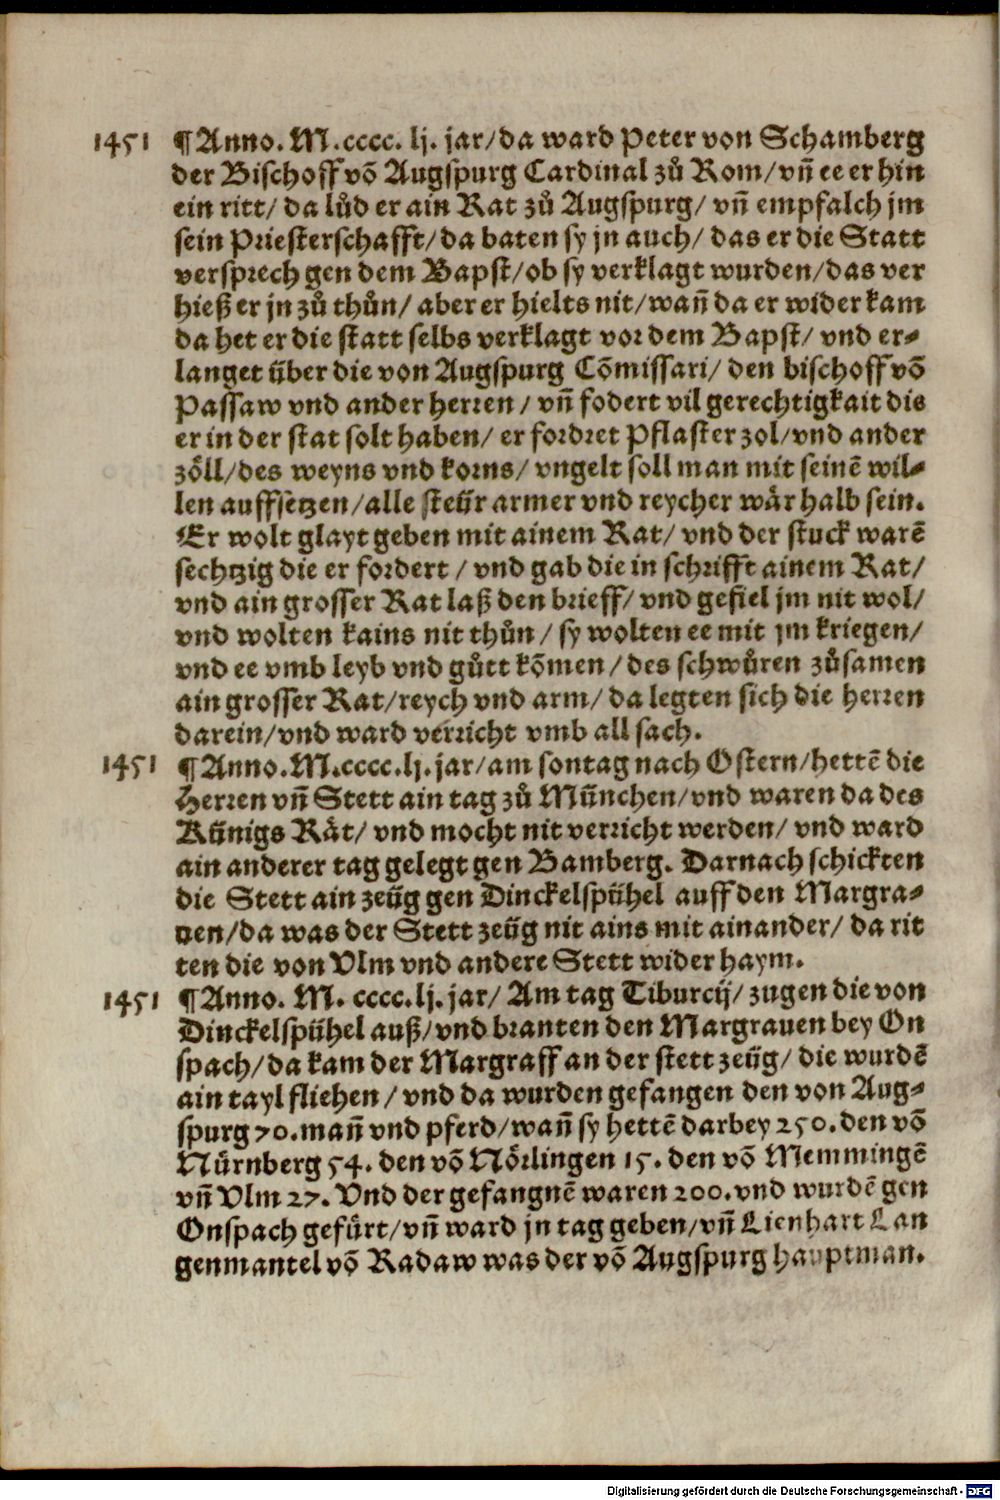 1451 ¶Anno. M.cccc. lj. jar/da ward Peter von Schamberg
der Bischoff võ Augspurg Cardinal zů Rom/vñ ee er hin
ein ritt/ da lůd er ain Rat zů Augspurg/ vñ empfalch jm
sein Priesterschafft/da baten sy jn auch/ das er die Statt
versprech gen dem Bapst/ob sy verklagt wurden/das ver
hieß er jn zů thůn/ aber er hielts nit/wañ da er wider kam
da het er die statt selbs verklagt vor dem Bapst/ vnd er⸗
langet über die von Augspurg Cõmissari/ den bischoff võ
Passaw vnd ander herren / vñ fodert vil gerechtigkait dis
er in der stat solt haben/ er fordret Pflaster zol/vnd ander
zöll/des weyns vnd korns/ vngelt soll man mit seinẽ wil⸗
len auffsetzen/alle steür armer vnd reycher wär halb sein.
Er wolt glayt geben mit ainem Rat/ vnd der stuck warẽ
sechtzig die er fordert / vnd gab die in schrifft ainem Rat/
vnd ain grosser Rat laß den brieff/ vnd gefiel jm nit wol/
vnd wolten kains nit thůn / sy wolten ee mit jm kriegen/
vnd ee vmb leyb vnd gůtt kõmen / des schwůren zůsamen
ain grosser Rat/reych vnd arm/ da legten sich die herren
darein/vnd ward verricht vmb all sach.
1451 ¶Anno.M.cccc.lj.jar/am sontag nach Ostern/hettẽ die
Herren vñ Stett ain tag zů München/vnd waren da des
Künigs Rät/ vnd mocht nit verricht werden/ vnd ward
ain anderer tag gelegt gen Bamberg. Darnach schickten
die Stett ain zeüg gen Dinckelspühel auff den Margra⸗
uen/da was der Stett zeüg nit ains mit ainander/ da rit
ten die von Vlm vnd andere Stett wider haym.
1451 ¶Anno. M. cccc.lj.jar/ Am tag Tiburcij/ zugen die von
Dinckelspühel auß/vnd branten den Margrauen bey On
spach/da kam der Margraff an der stett zeüg/ die wurdẽ
ain tayl fliehen / vnd da wurden gefangen den von Aug⸗
spurg 70.mañ vnd pferd/wañ sy hettẽ darbey 250.den võ
Nürnberg 54. den võ Nörlingen 15. den võ Memmingẽ
vñ Vlm 27. Vnd der gefangnẽ waren 200.vnd wurdẽ gen
Onspach gefürt/vñ ward jn tag geben/vñ Lienhart Lan
genmantel võ Radaw was der võ Augspurg hauptman.
Digitalisierung gefördert durch die Deutsche Forschungsgemeinschaft - DFG